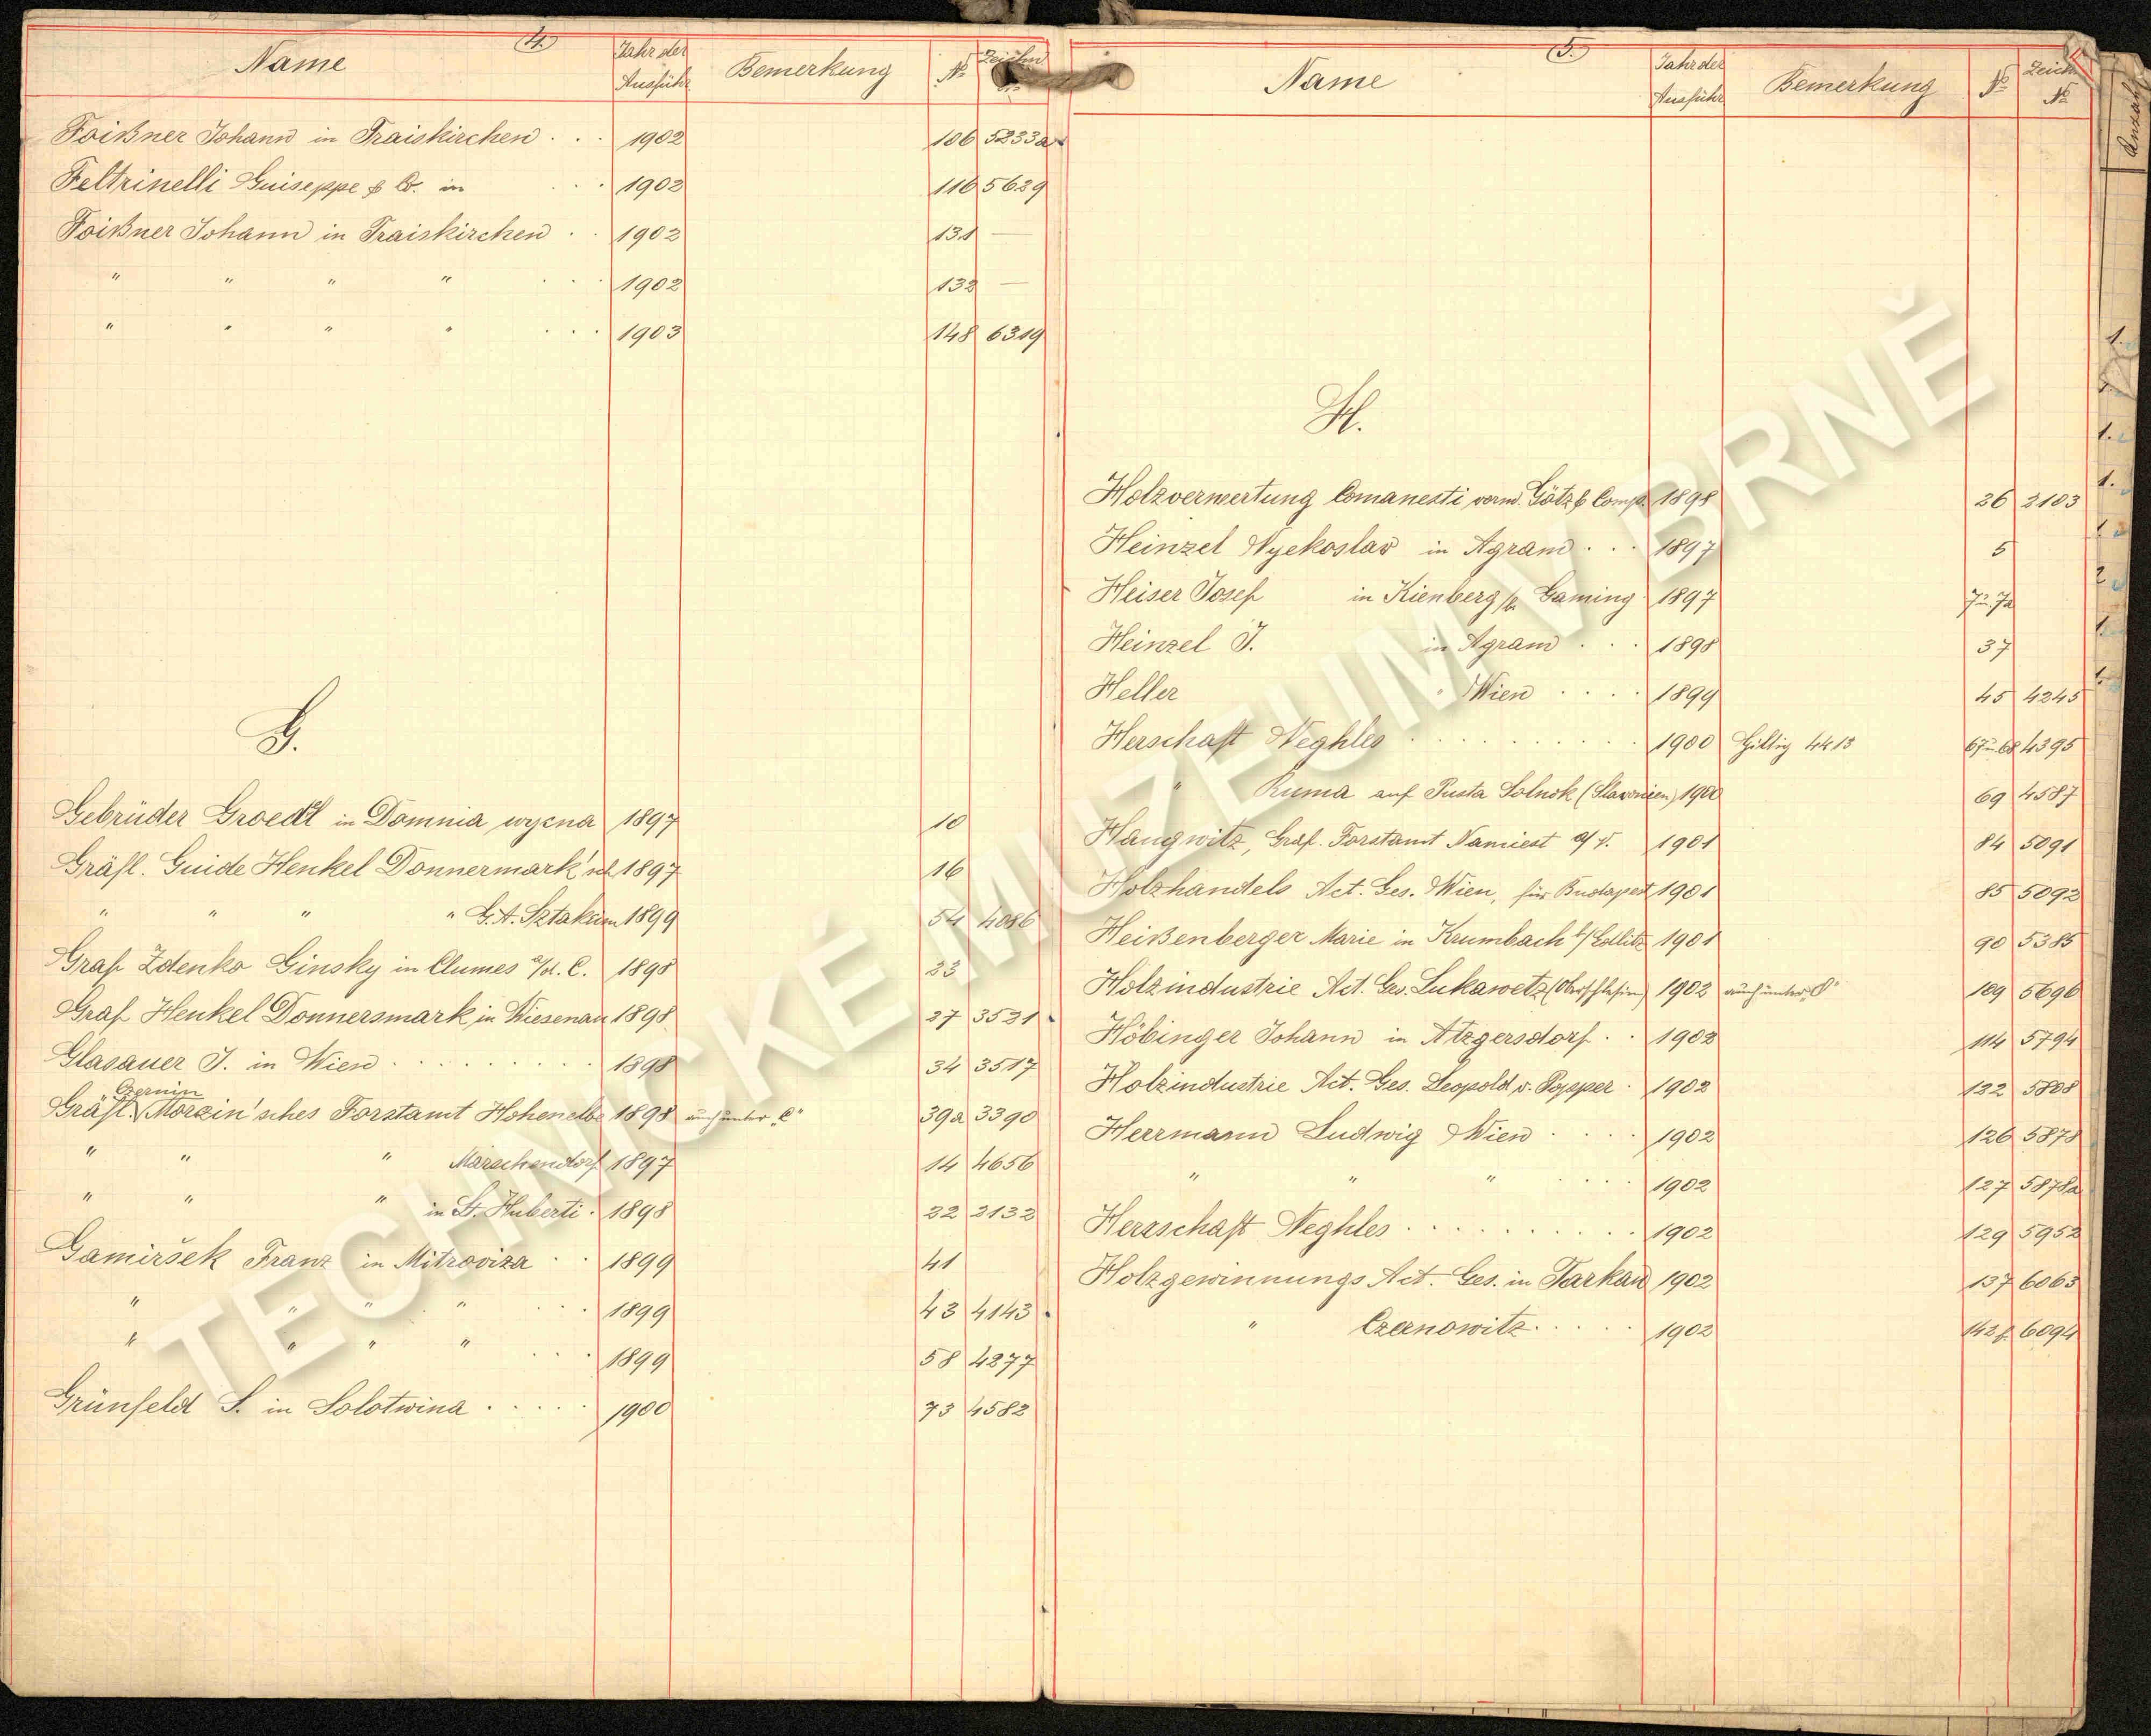 4.
Name Jahr der Ausführ. Bemerkung № Zeichn
Foißner Johann in Traiskirchen . . . 1902 106 5233a
Feltrinelli Guiseppe & Co. in . . . 1902 116 5629
Foißner Johann in Traiskirchen . . 1902 131 —
" " " " . . . 1902 132 —
" " " " . . . 1903 148 6319
G.
Gebrüder Groedl in Domnia wycna 1897 10
Gräfl. Guide Henkel Donnermark'sch 1897 16
" " " " G.A. Sztakcin 1899 54 4086
Graf Zdenko Ginsky in Clumes a/d. C. 1898 23
Graf Henkel Donnersmark in Wiesenau 1898 27 3521
Glasauer J. in Wien . . . . . . . . 1898 34 3517
Czernin
Gräfl. Morzin'sches Forstamt Hohenelbe 1898 auch unter „C" 39a 3390
" " " Marschendorf 1897 14 4656
" " " in St. Huberti . 1898 22 2132
Gamiršek Franz in Mitroviza . . 1899 41
" " " " . . . 1899 43 4143
" " " " . . . 1899 58 4277
Grünfeld S. in Solotwina . . . . . 1900 73 4582
5.
Name Jahr der Ausführ. Bemerkung № Zeichn №
H.
Holzverwertung Comanesti vorm. Götz & Comp. 1898 26 2103
Heinzel Vyekoslav in Agram . . . 1897 5
Heiser Josef in Kienberg b. Gaming . 1897 7u.7a
Heinzel J. in Agram . . . 1898 37
Heller " Wien . . . . 1899 45 4245
Herschaft Neghles . . . . . . . . . . 1900 Giltig 4413 67u.68 4395
" Ruma auf Pusta Solnok (Slavonien) 1900 69 4587
Haugwitz, Gräfl. Forstamt Namiest a/ 1901 84 5091
Holzhandels Act. Ges. Wien, für Budapest 1901 85 5092
Heißenberger Marie in Krumbach b/ 1901 90 5385
Holzindustrie Act. Ges. Lukawetz 1902 auch unter 109 5696
Höbinger Johann in Atzgersdorf . . 1902 114 5794
Holzindustrie Act. Ges. Leopold v. Popper . 1902 122 5808
Herrmann Ludwig Wien . . . . 1902 126 5878
" " " . . . . 1902 127 5878a
Herrschaft Neghles . . . . . . . . . . 1902 129 5952
Holzgewinnungs Act. Ges. in Tarkau 1902 137 6063
" Czernowitz . . . . . 1902 142 6094
Anzahl
TECHNICKÉ MUZEUM V BRNĚ